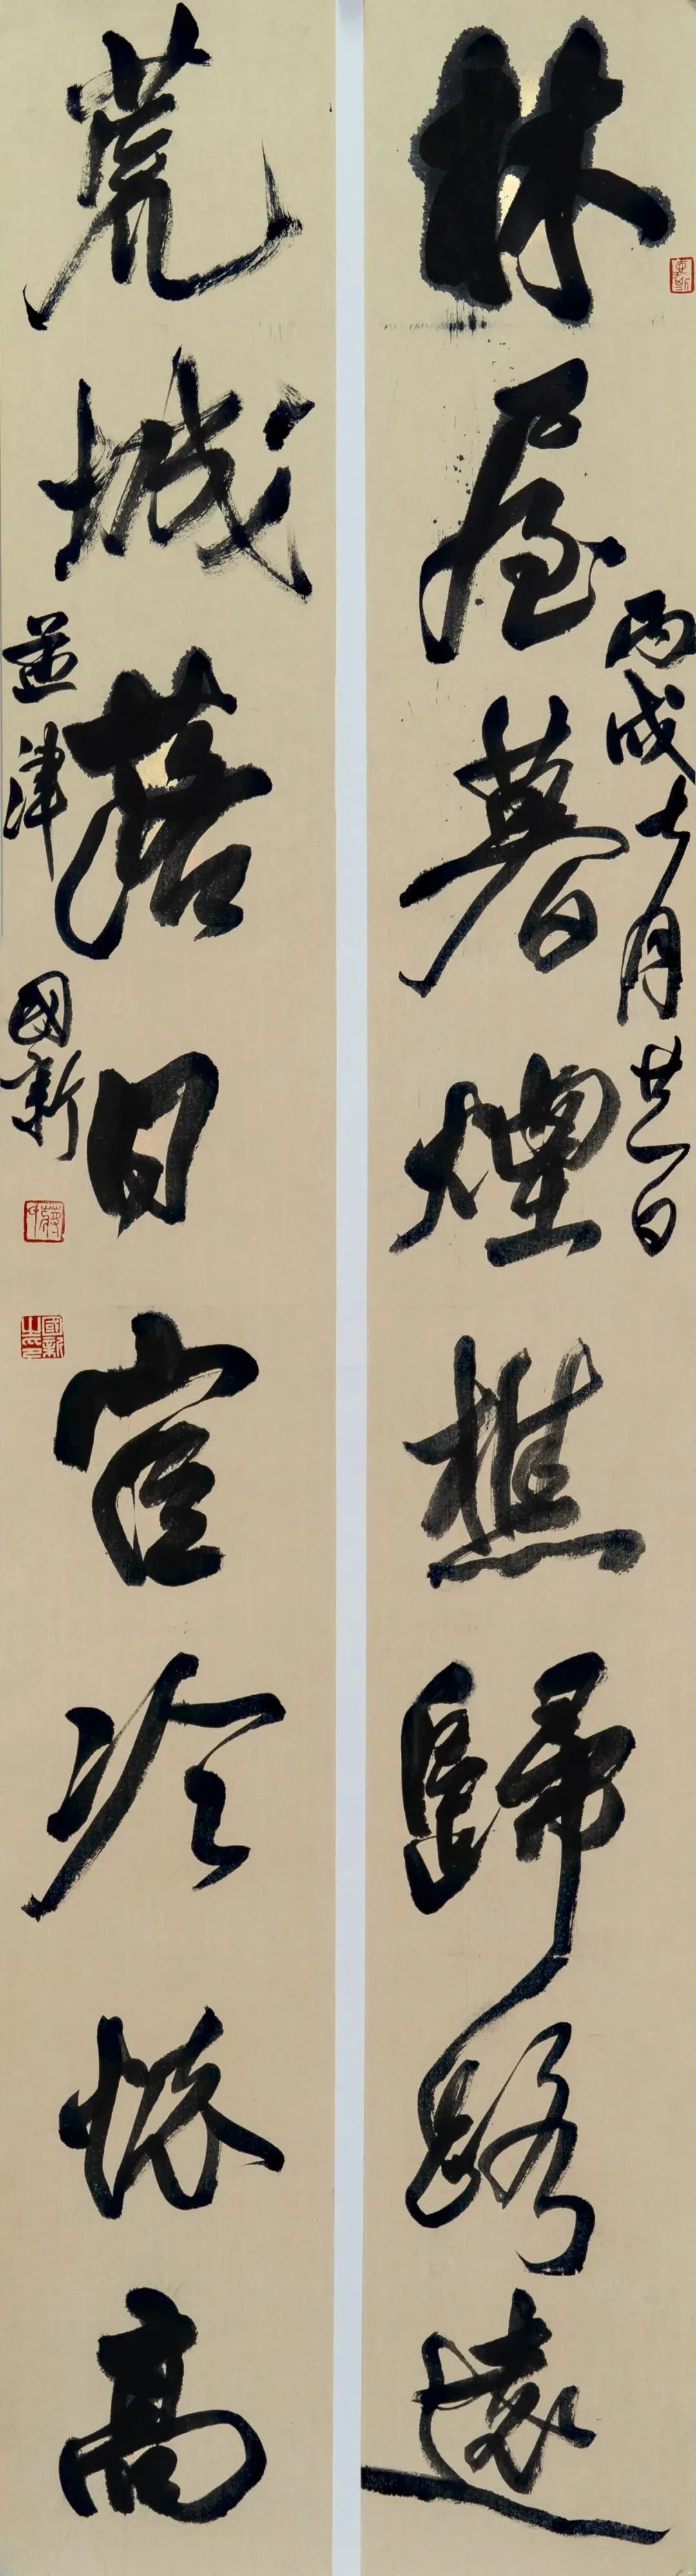 林屋暮煙樵歸路遠
丙戌七月廿一日
荒城落日官冷怀高
孟津
國新